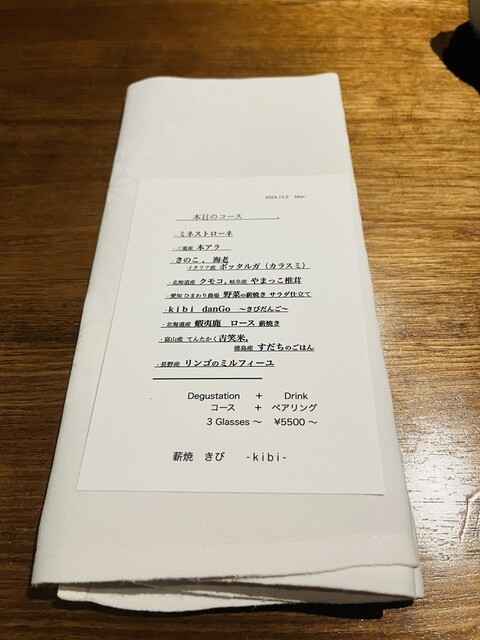 2024.12.2 Mon
本日のコース .
・ミネストローネ
・三重産 本アラ
・きのこ , 海老
イタリア産 ボッタルガ（カラスミ）
・北海道産 クモコ, 岐阜産 やまっこ椎茸
・愛知 ひまわり農場 野菜の薪焼き サラダ仕立て
・kibi danGo ～きびだんご～
・北海道産 蝦夷鹿 ロース 薪焼き
・富山産 てんたかく吉笑米,
徳島産 すだちのごはん
・長野産 リンゴのミルフィーユ
Degustation + Drink
コース + ペアリング
3 Glasses ～ ¥5500 ～
薪焼 きび -kibi-